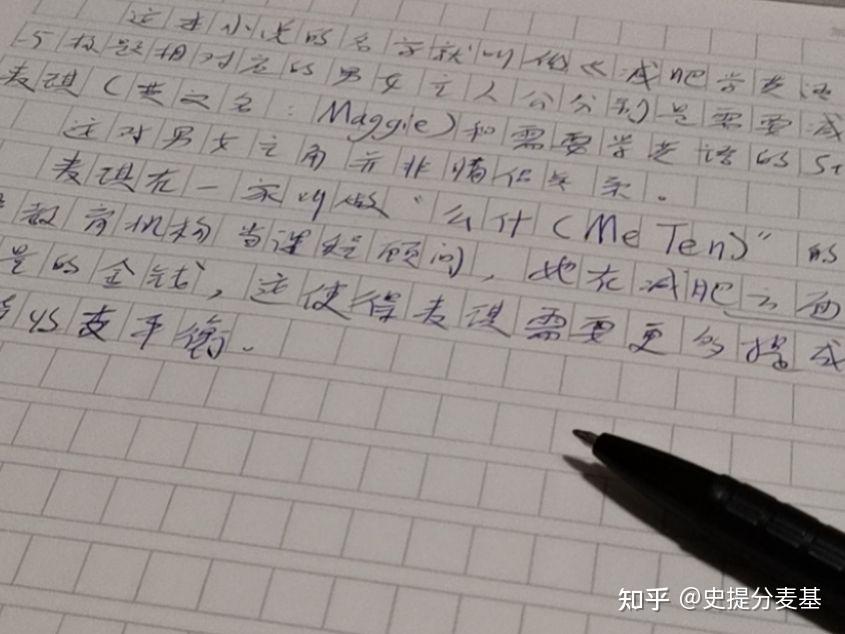 这本小说的名字就叫做《减肥学英语
与标题相对应的男女主人公分别是需要减
麦琪（英文名：Maggie）和需要学英语的St
这对男女主角并非情侣关系。
麦琪在一家叫做“么什（Me Ten）”的
教育机构当课程顾问，她在减肥方面
是的金钱，这使得麦琪需要更多提成
收支平衡。
知乎 @史提分麦基